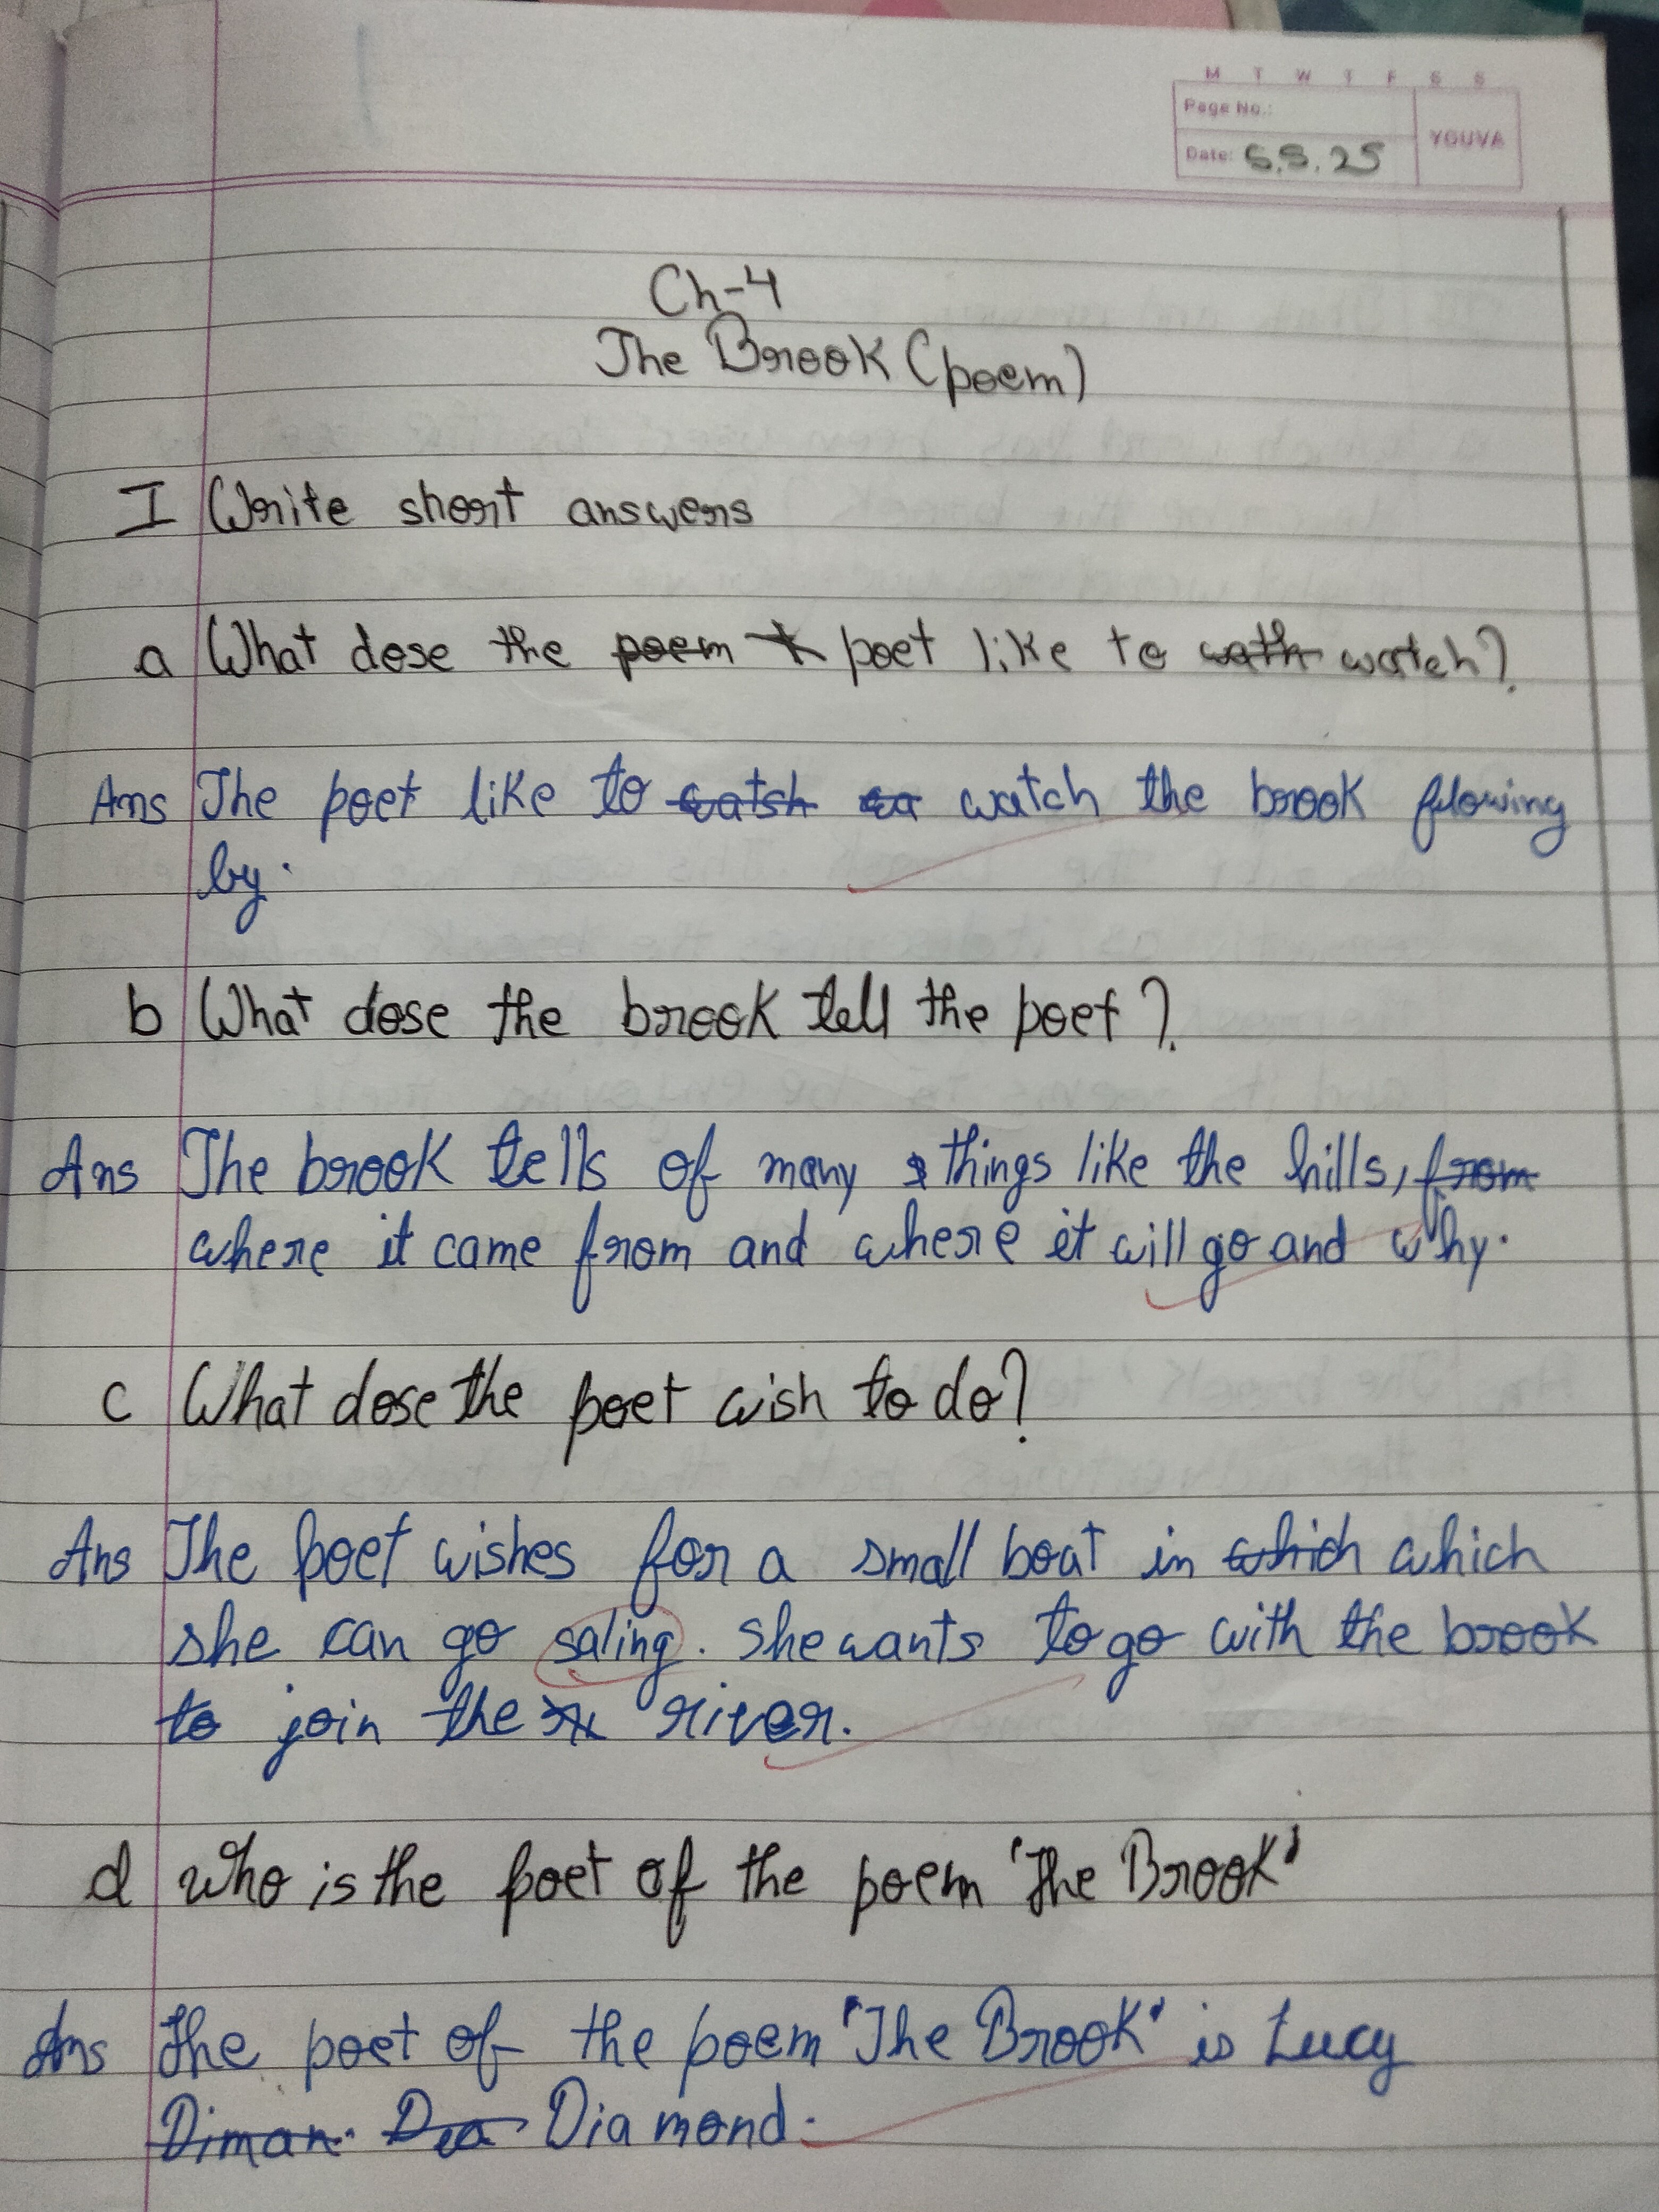 M T W T F S S
Page No.:
YOUVA
Date: 5.5.25
Ch-4
The Brook (poem)
I Write short answers
a What dose the poem poet like to wath watch?
Ans The poet like to watsh wa watch the brook flowing
by.
b What dose the brook tell the poet?
Ans The brook tells of many things like the hills, from
where it came from and where it will go and why.
c What dose the poet wish to do?
Ans The poet wishes for a small boat in which which
she can go saling. she wants to go with the brook
to join the river.
d Who is the poet of the poem 'The Brook'
Ans The poet of the poem 'The Brook' is Lucy
Diman. Dea Diamond.